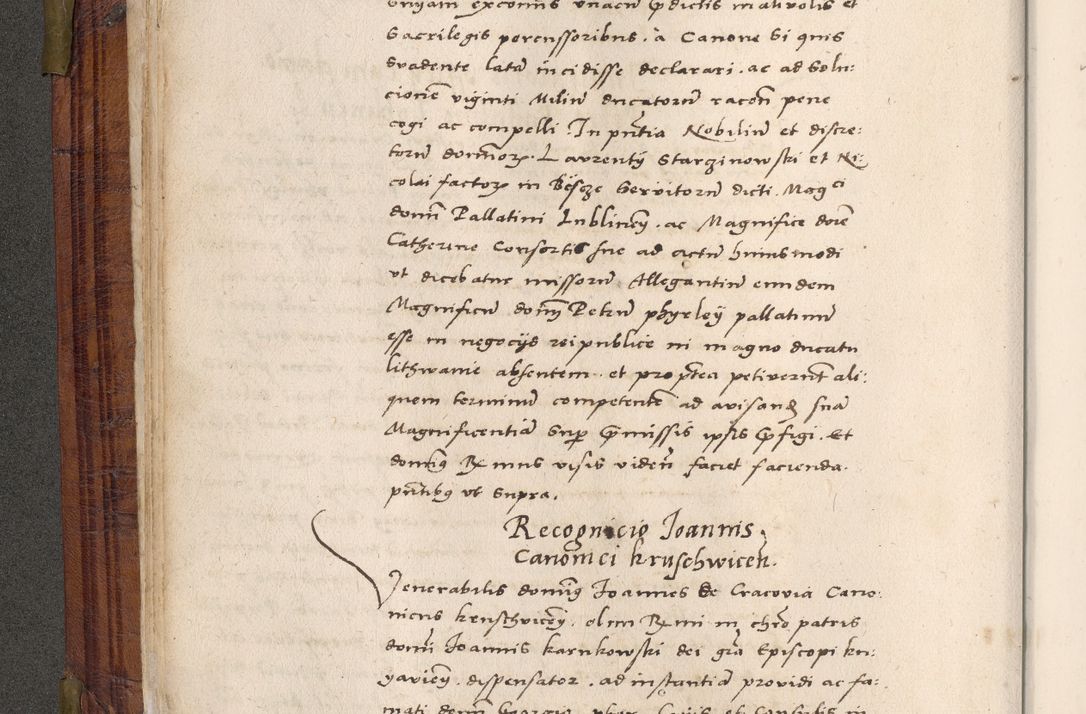 omnium excomis unacum p̄dictis malivolis et
Sacrilegis percussoribus. a Canone Si quis
Suadente latam incidisse declarari. ac ad Solu:
cionem viginti Milium ducatorum racōn pene
cogi ac compelli. In pn̄tia Nobilium et discre:
torum domnoꝝ. Laurentÿ Starzinowski et Ni:
colai factoꝝ in Servitorum dicti Magci
domī Pallatini Lublineñ. ac Magnifice doīe
Catherine Consortis sue ad actum huiusmodi
ut dicebatur missorum Allegantium eundem
Magnificum domī Petrum phyrleÿ pallatinum
esse in negocÿs reipublice in magno ducatu
lithwanie absentem. et propterea petiverunt ali:
quem terminum competentem ad avisandam suam
Magnificentiam Sup p̄missis ipsis p̄figi. Et
dominus Rx̄mus visis videñ faciet facienda.
pn̄tibus ut Supra.
Recognicio Joannis
Canonici kruschwiceñ.
Venerabilis dominus Joannes de Cracovia Cano:
nicus kruschviceñ. olim Rx̄mi in chr̄o patris
domī Joannis karnkowski dei grā Episcopi ku:
yavieñ. dispensator. ad instantiam providi ac fa:
mati domī Georgii